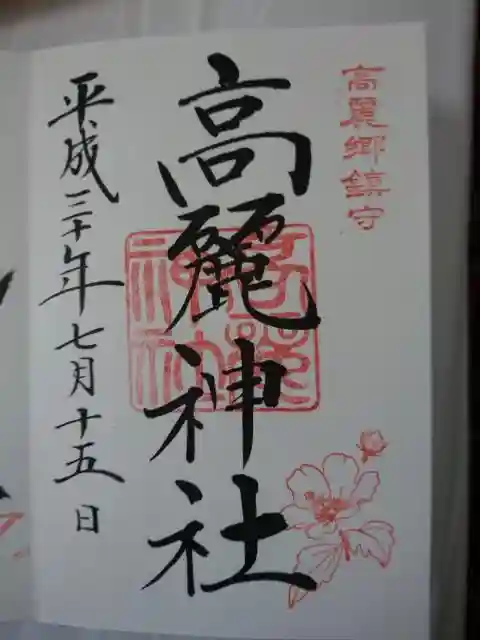 高麗郷鎮守
高麗神社
平成三十年七月十五日
高麗神社